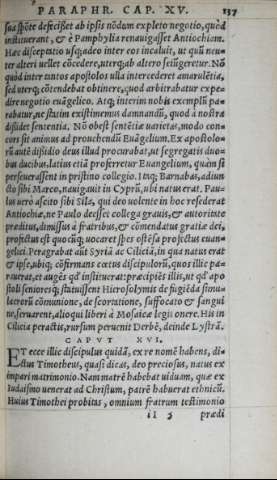 PARAPHR. CAP. XV. 137
sua spōte descißet ab ipsis nōdum expleto negotio, quòd
instituerant, & è Pamphylia renauigasset Antiochiam.
Hæc disceptatio usq; adeo inter eos incaluit, ut quū neu=
ter alteri uellet cōcedere, uterq; ab altero seiūgeretur. Nō
quòd inter tantos apostolos ulla intercederet amarulētia,
sed uterq; cōtendebat obtinere, quod arbitrabatur expe=
dire negotio euāgelico. Atq; interim nobis exemplū pa=
rabatur, ne statim existimemus damnandū, quod à nostra
dißidet sententia. Nō obest sentētiæ uarietas, modo con=
cors sit animus ad prouehendū Euāgelium. Ex apostolo=
rū autē dißidio deus illud procurabat, ut segregati duo=
bus ducibus, latius etiā proferretur Euangelium, quàm si
perseuerassent in pristino collegio. Itaq; Barnabas, adiun
cto sibi Marco, nauigauit in Cyprū, ubi natus erat. Pau=
lus uerò ascito sibi Sila, qui deo uolente in hoc resederat
Antiochiæ, ne Paulo deesset collega grauis, & autoritate
præditus, dimissus à fratribus, & cōmendatus gratiæ dei,
profectus est quocūq; uocaret spes ostēsa profectus euan=
gelici. Peragrabat aūt Syriā ac Ciliciā, in qua natus erat
et ipse, ubiq; cōfirmans cœtus discipulorū, quos illic pa=
rauerat, et augēs qd' institurat: præcipiēs illis, ut qd' apo
stoli senioresq; statuissent Hierosolymis de fugiēda simu=
lacrorū cōmunione, de scortatione, suffocato & sangui
ne, seruarent, alioqui liberi à Mosaicæ legis onere. His in
Cilicia peractis, rursum peruenit Derbē, deinde Lystrā.
CAPVT XVI.
ET ecce illic discipulus quidā, ex re nomē habens, di=
ctus Timotheus, quasi dicas, deo preciosus, natus ex
impari matrimonio. Nam matrē habebat uiduam, quæ ex
Iudaismo uenerat ad Christum, patrē habuerat ethnicū.
Huius Timothei probitas, omnium fratrum testimonio
ii 5 prædi